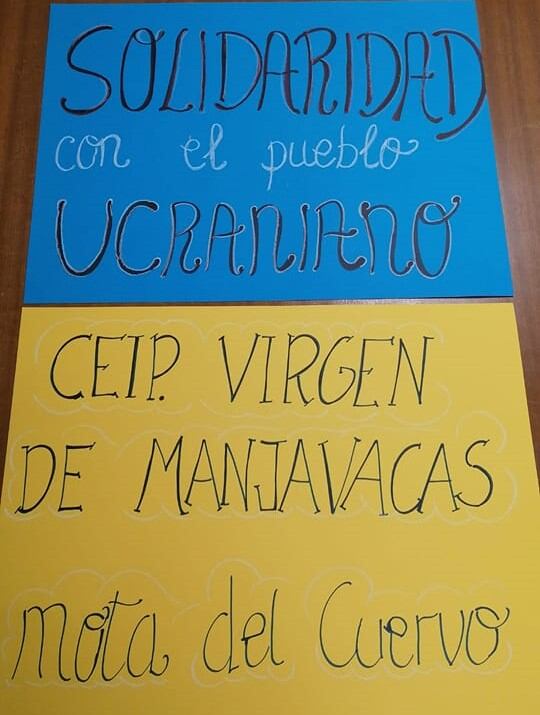 SOLIDARIDAD
con el pueblo
UCRANIANO
CEIP. VIRGEN
DE MANJAVACAS
mota del Cuervo